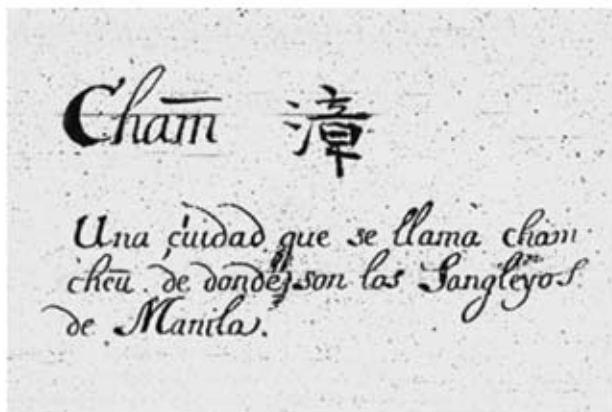 Cham̄ 漳
Una çuidad que se llama cham
cheū de donde son los Sangleyos
de Manila.